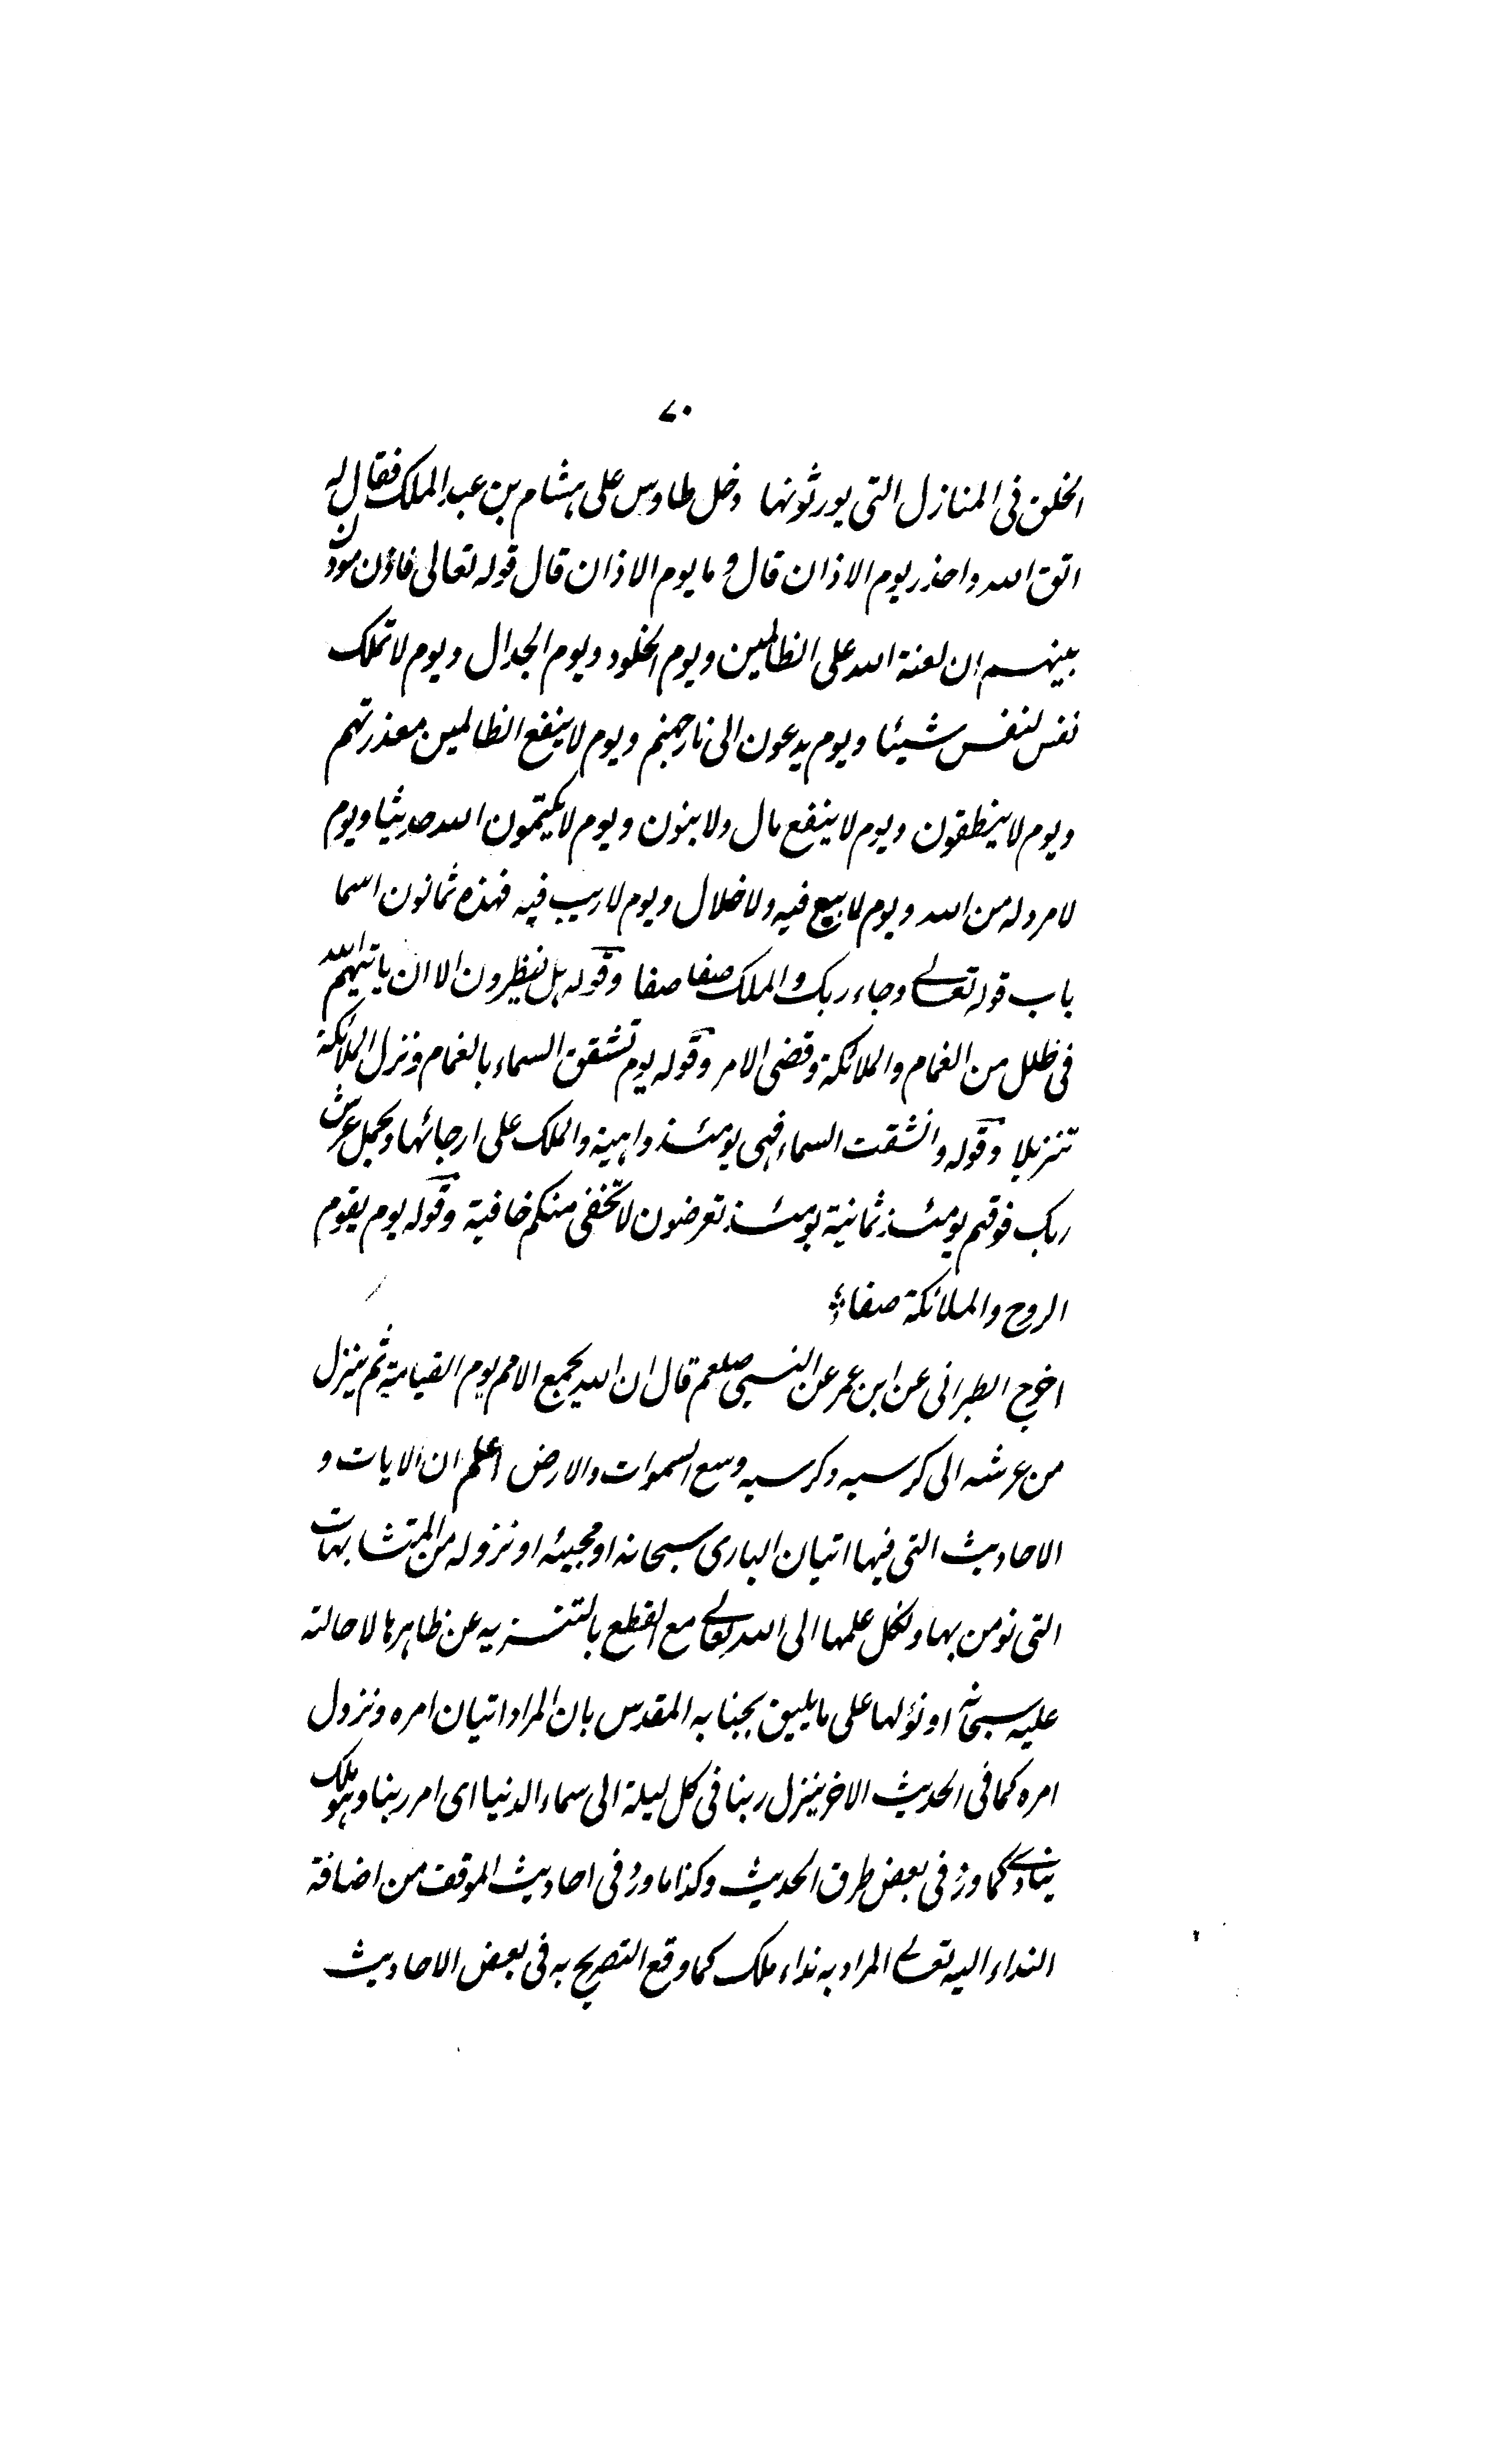 ۷۰
الخلق فی المنازل التی یورثونها دخل طاوس علی هشام بن عبد الملک فقال له
اتق الله واحذر یوم الاذان قال و ما یوم الاذان قال قوله تعالی فاذن موذن
بینهم ان لعنة الله علی الظالمین و یوم الخلود و یوم الجدال و یوم لا تملک
نفس لنفس شیئا و یوم یدعون الی نار جهنم و یوم لا ینفع الظالمین معذرتهم
و یوم لا ینطقون و یوم لا ینفع مال ولا بنون و یوم لا یکتمون الله حدیثا و یوم
لا مرد له من الله و یوم لا بیع فیه ولا خلال و یوم لا ریب فیه فهذه ثمانون اسما
باب قوله تعالے وجاء ربک والملک صفا صفا وقوله هل ینظرون الا ان یاتیهم الله
فی ظلل من الغمام والملائکة وقضی الامر وقوله یوم تشقق السماء بالغمام ونزل الملائکة
تنزیلا وقوله وانشقت السماء فهی یومئذ واهیة والملک علی ارجائها ویحمل عرش
ربک فوقهم یومئذ ثمانیة یومئذ تعرضون لا تخفی منکم خافیة وقوله یوم یقوم
الروح والملائکة صفا
اخرج الطبرانی عن ابن عمر عن النبی صلعم قال ان الله یجمع الامم یوم القیامة ثم ینزل
من عرشه الی کرسیه وکرسیه وسع السموات والارض اعلم ان الایات و
الاحادیث التی فیها اتیان الباری سبحانه او مجیئه او نزوله من المتشابهات
التی نومن بها ونکل علمها الی الله تعالے مع القطع بالتنزیه عن ظاهرها لاحالته
علیه سبحانه او نؤلها علی ما یلیق بجنابه المقدس بان المراد اتیان امره ونزول
امره کما فی الحدیث الاخر ینزل ربنا فی کل لیلة الی سماء الدنیا ای امر ربنا وهو ملک
ینادے کما ورد فی بعض طرق الحدیث وکذا ما ورد فی احادیث الموقف من اضافة
النداء الیه تعالے المراد به نداء ملک کما وقع التصریح به فی بعض الاحادیث